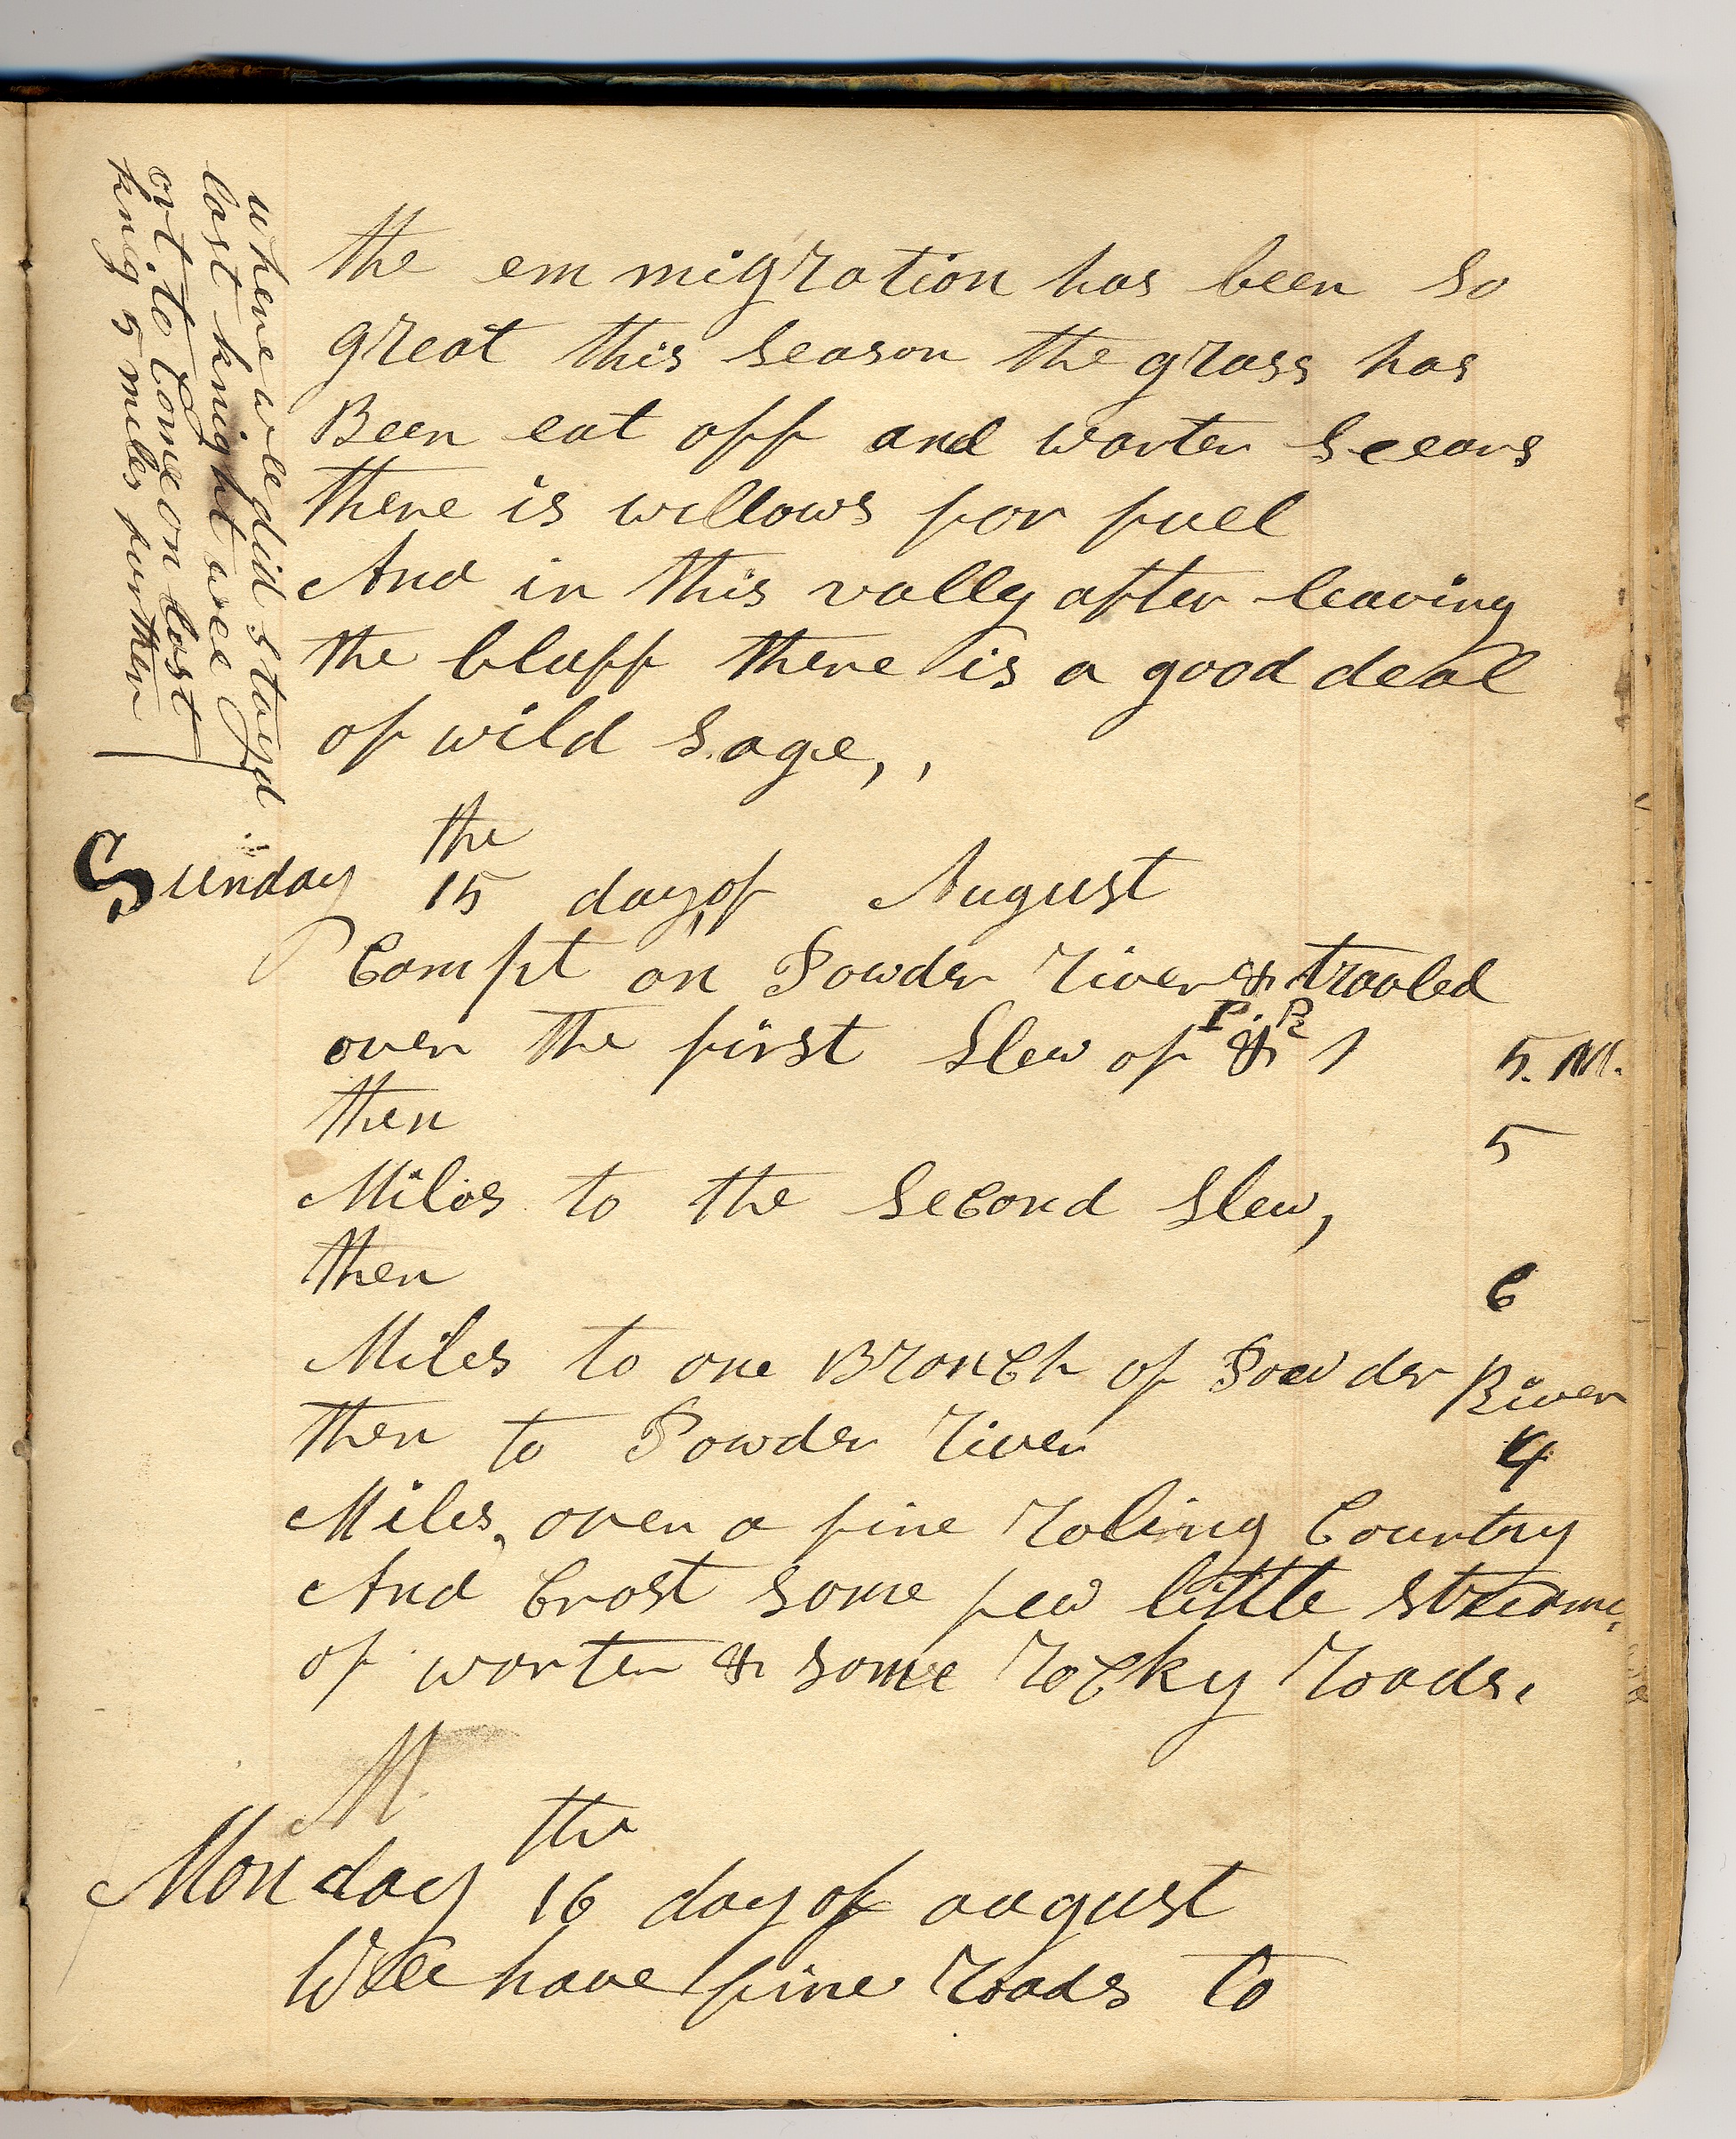 where wee did stayd
last knight wee
ort to Come on last
knig 5 miles further
the emmigration has been so
great this season the grass has
Been eat off and warter scears
there is willows for fuel
And in this vally after leaving
the bluff there is a good deal
of wild sage,,
the
Sunday 15 day of August
Campt on Powder river & travled
P. R
over the first Slew of & 1 5. M.
then 5
Miles to the Second Slew,
then 6
Miles to one Branch of Powder River
then to Powder river 4
Miles, over a fine roling Country
And Crost some few little streams,
of warter & some rocky roads.
M
the
Monday 16 day of august
Wee have fine roads to